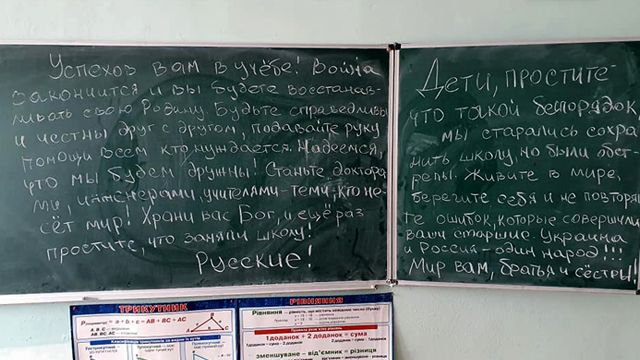 Успехов вам в учёбе! Война
закончится и вы будете восстанав-
ливать свою Родину. Будьте справедливы
и честны друг с другом, подавайте руку
помощи всем кто нуждается. Надеемся,
что мы будем дружны! Станьте доктора-
ми, инженерами, учителями-теми-кто не-
сёт мир! Храни вас Бог, и ещё раз
простите, что заняли школу!
Русские!
Дети, простите
что такой беспорядок
мы старались сохра-
нить школу, но были обст-
релы. Живите в мире,
берегите себя и не повторяй
те ошибок, которые совершили
ваши старшие Украина
и Россия-один народ!!!
Мир вам, братья и сёстры!!
ТРИКУТНИК
P трикутника = a + b + c = AB + BC + AC
РІВНЯННЯ
Рівняння
Правила
1доданок + 2 доданок = сума
зменшуване - від'ємник = різниця